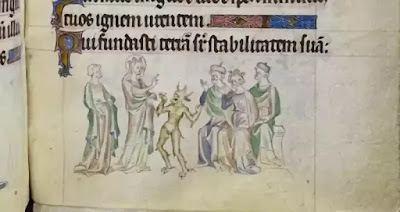 tuos ignem urentem.
Qui fundasti terrā sr̄ stabilitatem suā: